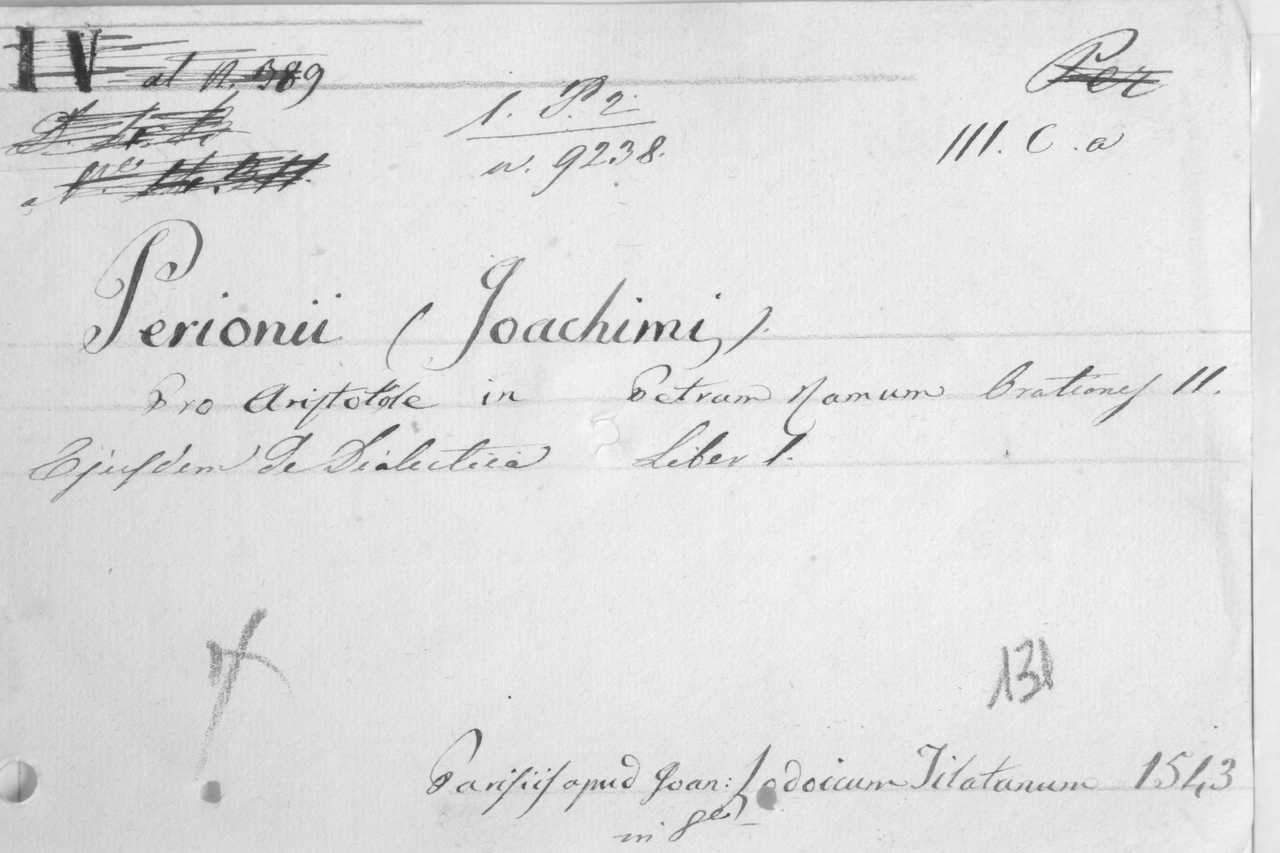 IV al n. 389
1. P. 2. Per
n. 9238. III. C. a
Perionii (Joachimi)
Pro Aristotele in Petrum Ramum Orationes II.
Ejusdem de Dialectica Liber I.
131
Parisiis apud Joan: Lodoicum Tiletanum 1543
in 8º